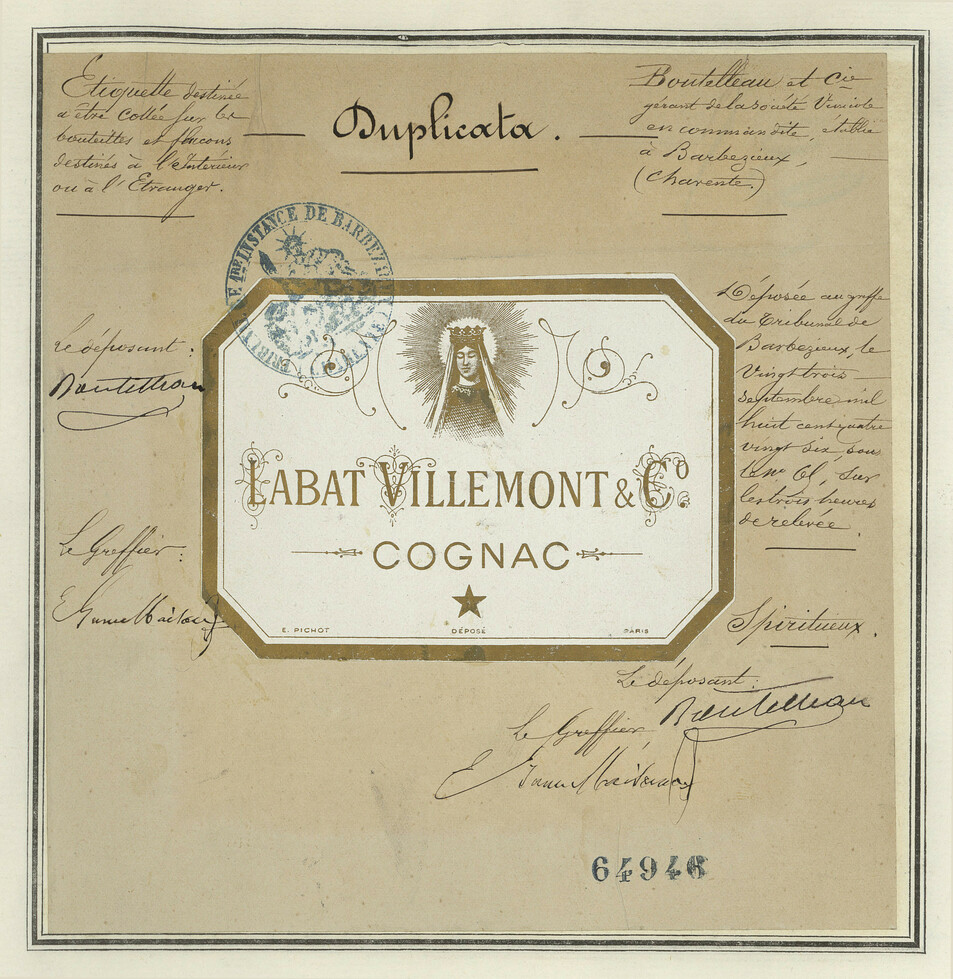 Etiquette destinée
à être collée sur les
bouteilles et flacons
destinés à l'Intérieur
ou à l'Etranger.
Duplicata.
Boutelleau et Cie
gérant de la société Vinicole
en commandite, établie
à Barbezieux,
(Charente.)
1ère INSTANCE DE BARBEZIEUX
Le déposant:
Boutelleau
Le Greffier:
LABAT VILLEMONT & Co.
COGNAC
E. PICHOT DÉPOSÉ PARIS
Déposée au greffe
du Tribunal de
Barbezieux, le
Vingt trois
septembre mil
huit cent quatre
vingt six, sous
le no 61, sur
les trois heures
de relevée.
Spiritueux.
Le déposant:
Boutelleau
Le Greffier,
64946